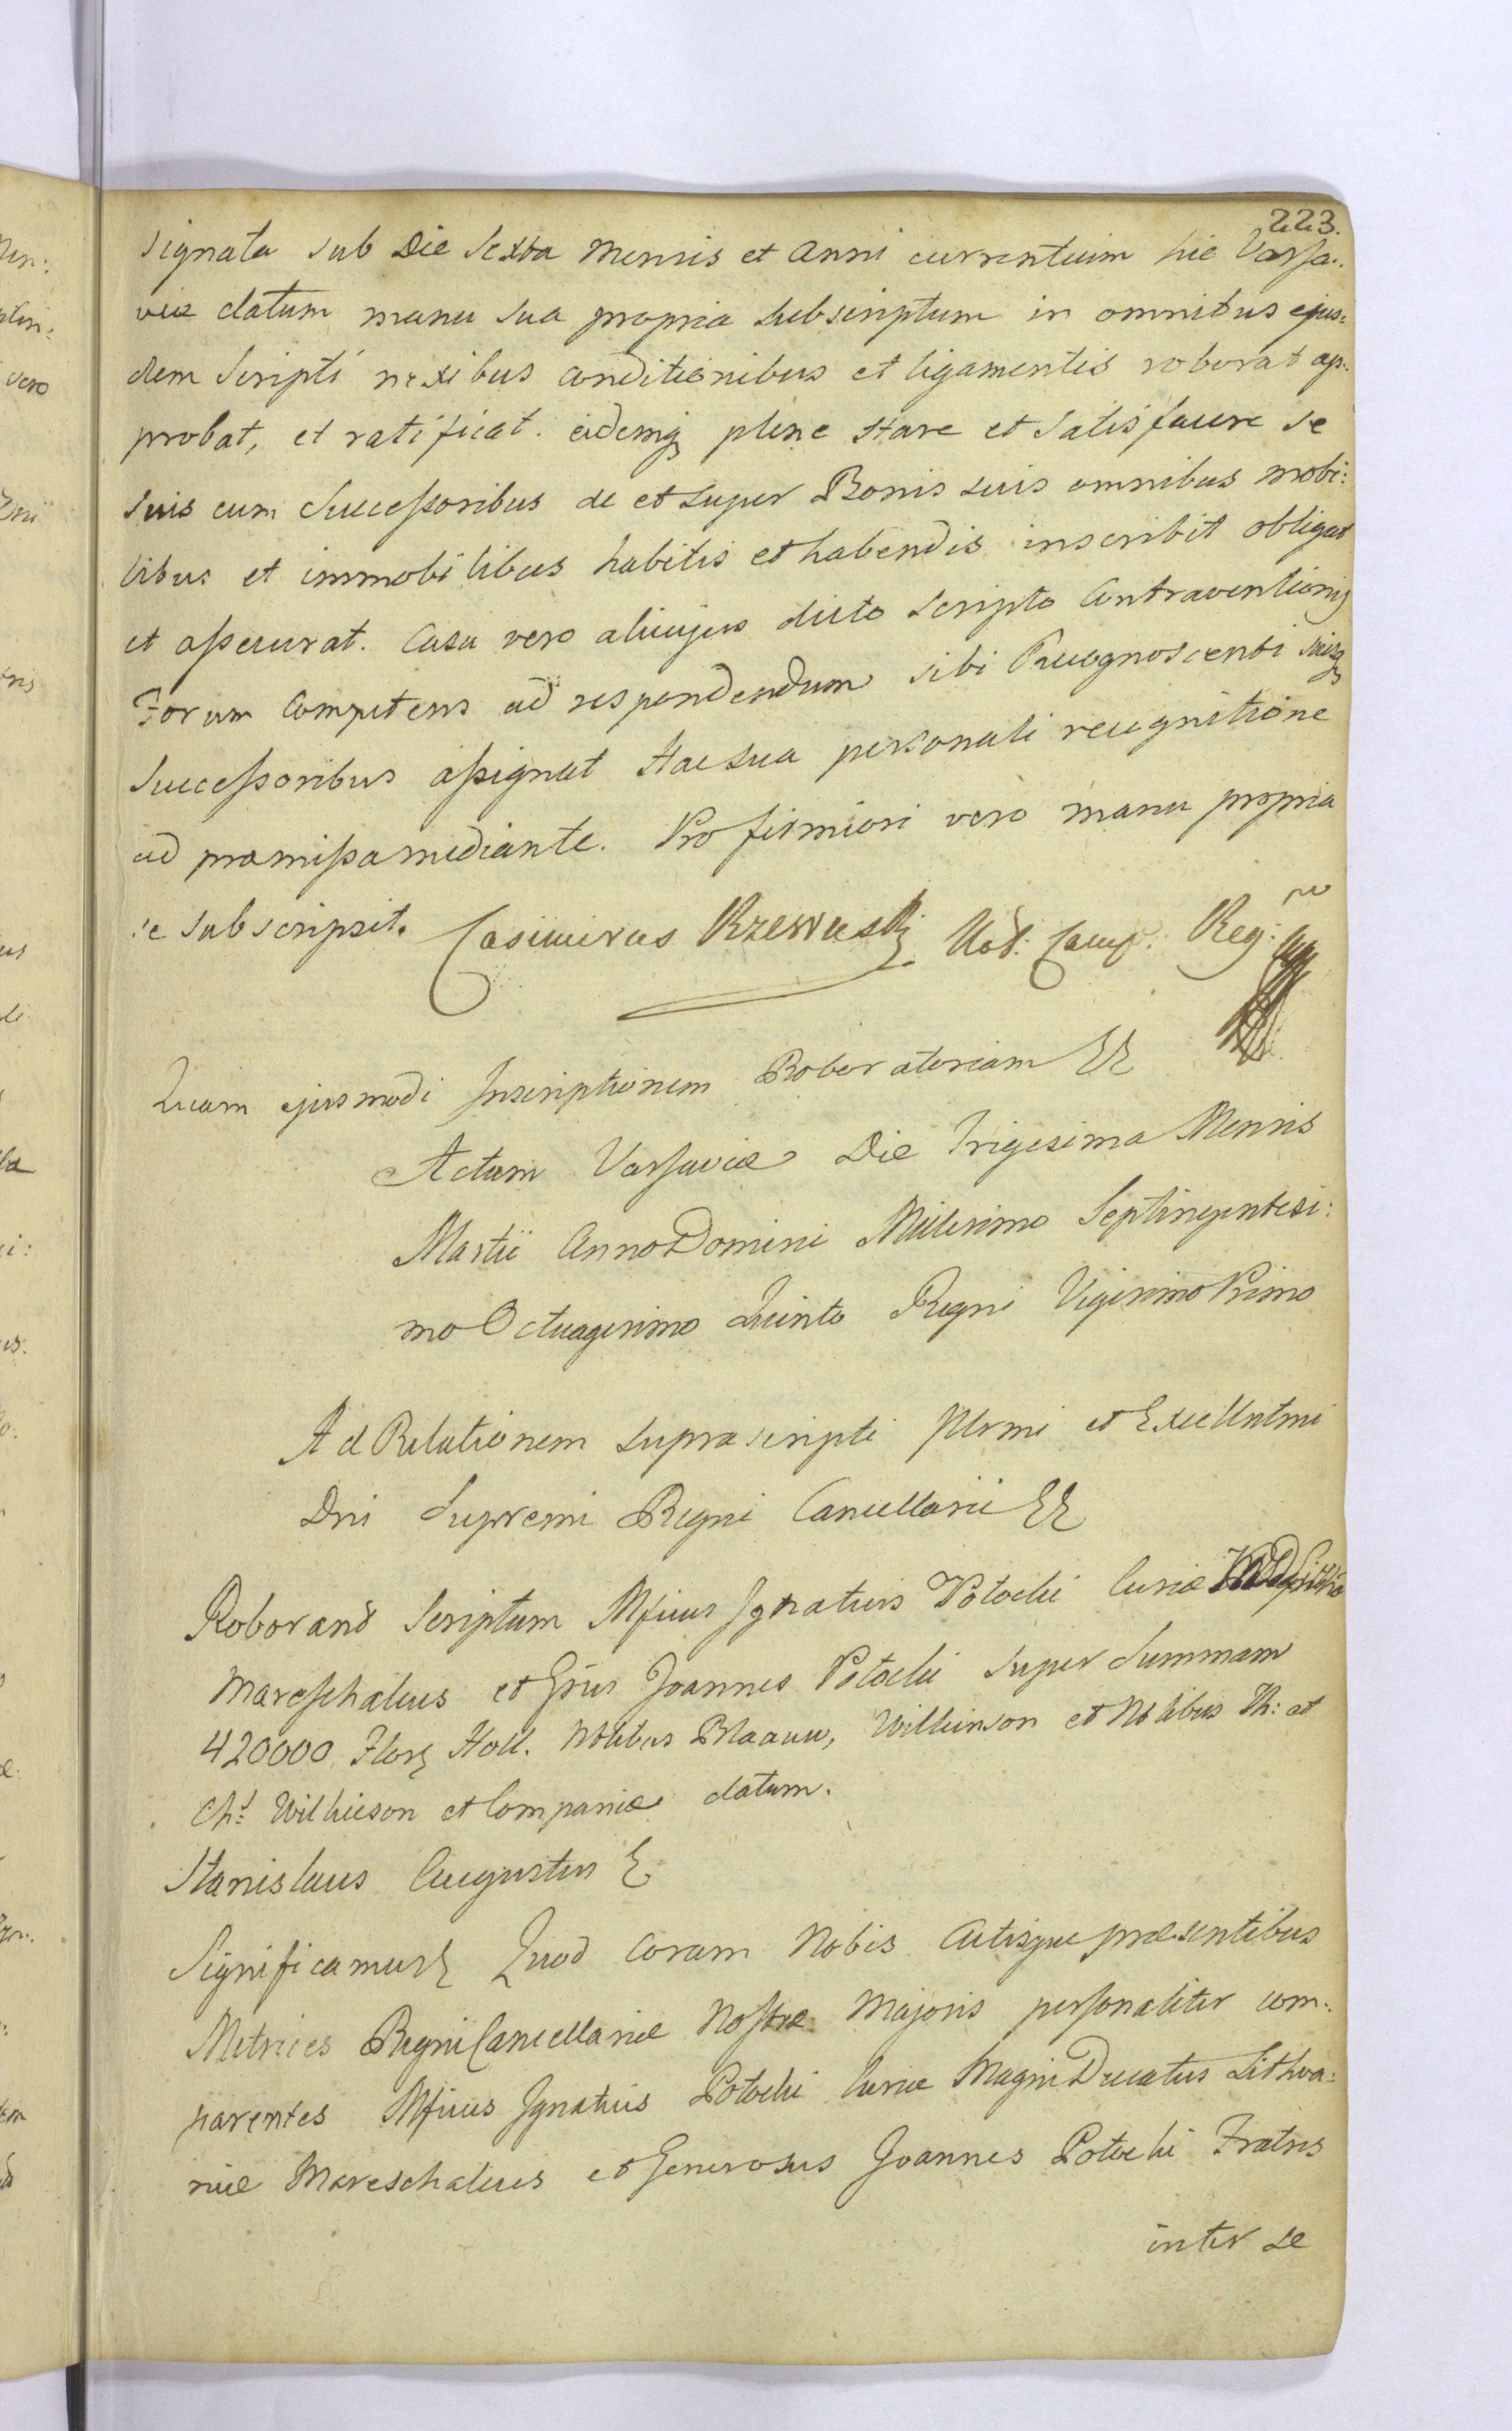 223.
signata sub Die Sexta Mensis et Anni currentium hic Varsa:
viæ datum manu sua propria subscriptum in omnibus ejus:
dem Scripti nexibus conditionibus et ligamentis roborat ap:
probat, et ratificat. eidemq plene stare et satisfacere se
suis cum Successoribus de et super Bonis suis omnibus mobi:
libus et immobilibus habitis et habendis inscribit obligat
et assecurat. Casu vero alicujus dicto Scripto Contraventionis
Forum Competens ad respondendum sibi Recognoscenti suisq
Successoribus assignat Hac sua personali recognitione
ad præmissa mediante. Pro firmiori vero manu propria
se subscripsit. Casimirus Rzewuski Not: Camp: Reg:
Quam ejusmodi Inscriptionem Roboratoriam &&
Actum Varsaviæ Die Trigesima Mensis
Martii Anno Domini Millesimo Septingentesi:
mo Octuagesimo Quinto Regni Vigesimo Primo
Ad Relationem suprascripti Illrmi et Excellntmi
Dni Supremi Regni Cancellarii &&
Roborand Scriptum Mficus Ignatius Potocki Curiæ
Mareschalcus et Gsus Joannes Potocki super Summam
420000 Flor Holl. Nblibus Blaauw, Wilkinson et Nblibus Th: et
Chs Wilkieson et Compania datum.
Stanislaus Augustus &
Significamus & Quod coram Nobis Actisque præsentibus
Metrices Regni Cancellariæ Nostræ Majoris personaliter com:
parentes Mficus Ignatius Potocki Curiæ Magni Ducatus Lithva:
niæ Mareschalcus et Generosus Joannes Potocki Fratres
inter se